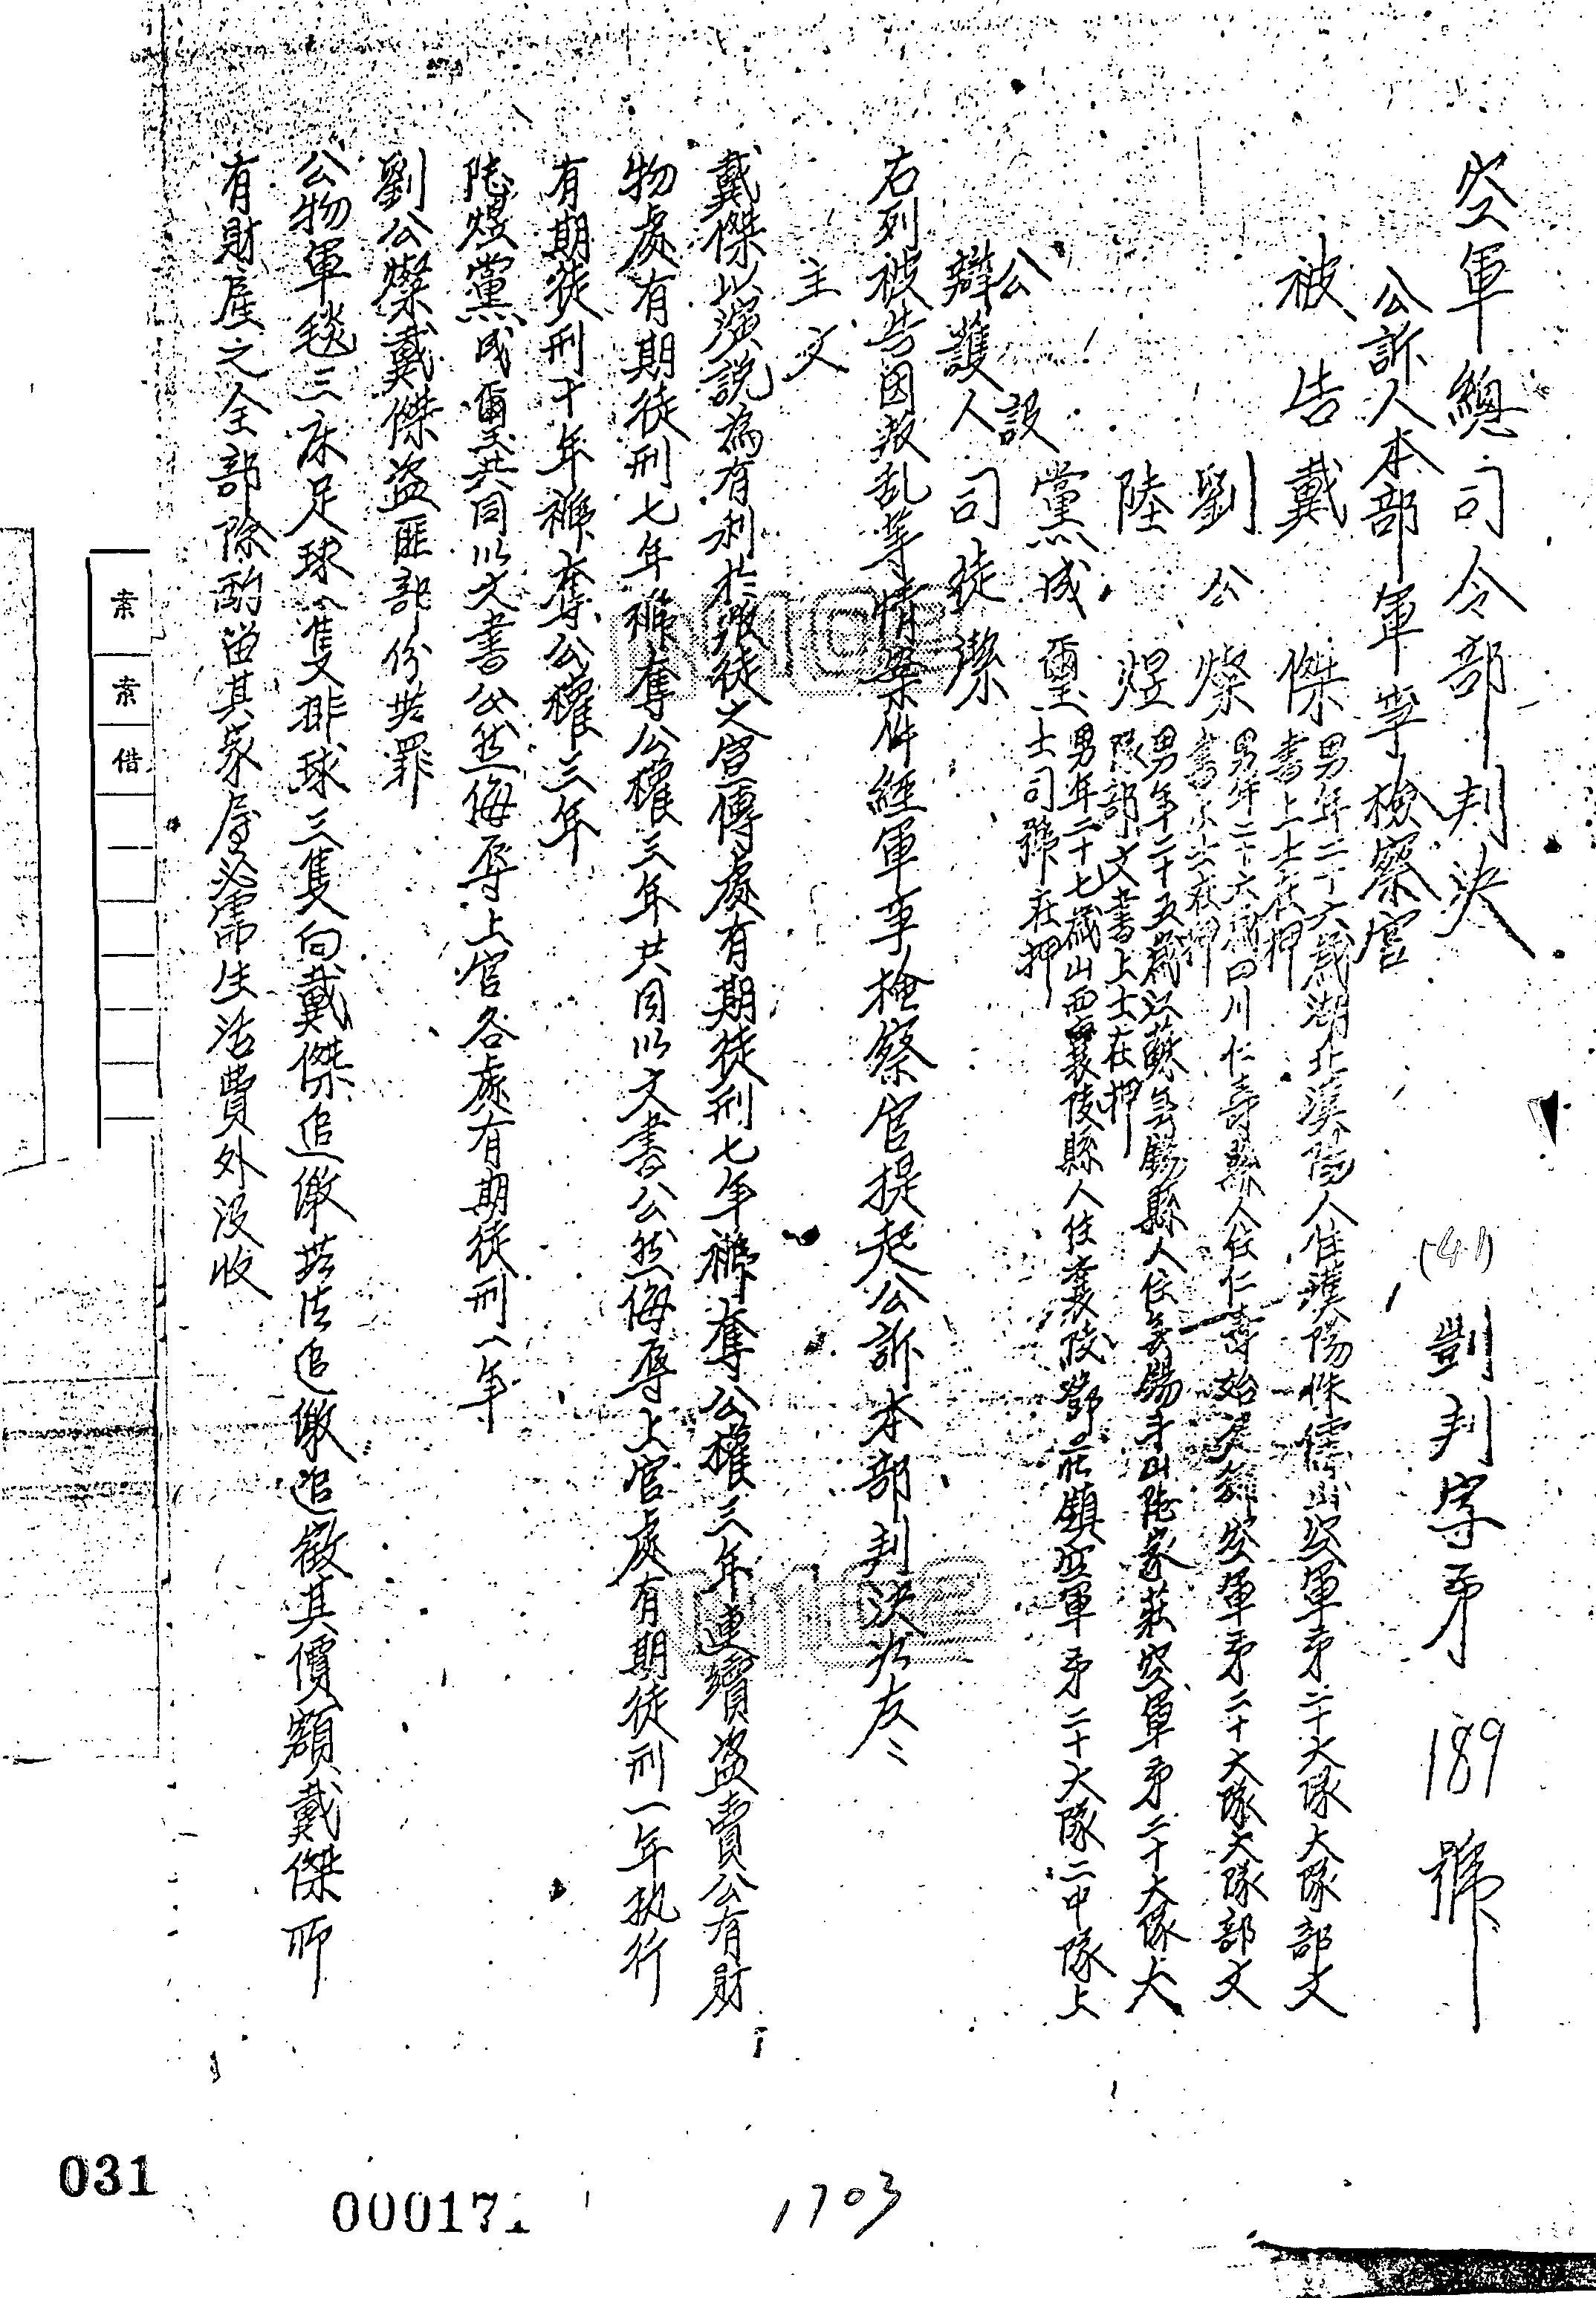 空軍總司令部判決
(41) 剴判字第 189 號
公訴人本部軍事檢察官
被告戴傑 男年二十六歲湖北漢陽人住漢陽 山空軍第二十大隊大隊部文
書上士在押
劉公燦 男年二十六歲四川仁壽縣人住仁壽始 空軍第二十大隊大隊部文
書 士在押
陸煜 男年二十五歲江蘇無錫縣人住無錫 山陸家莊空軍第二十大隊大
隊部文書上士在押
黨成璽 男年二十七歲山西襄陵縣人住襄陵鄧莊鎮空軍第二十大隊二中隊上
士司號在押
公設
辯護人司徒潔
右列被告因叛乱等情案件經軍事檢察官提起公訴本部判決如左:
主文
戴傑以演說為有利於叛徒之宣傳處有期徒刑七年褫奪公權三年連續盜賣公有財
物處有期徒刑七年褫奪公權三年共同以文書公然侮辱上官處有期徒刑一年执行
有期徒刑十年褫奪公權三年
陸煜黨成璽共同以文書公然侮辱上官各處有期徒刑一年
劉公燦戴傑盜匪部份無罪
公物軍毯三床足球一隻排球三隻向戴傑追繳無法追繳追徵其價額戴傑所
有財產之全部除酌留其家屬必需生活費外沒收
索
索
借
031
000171
1703